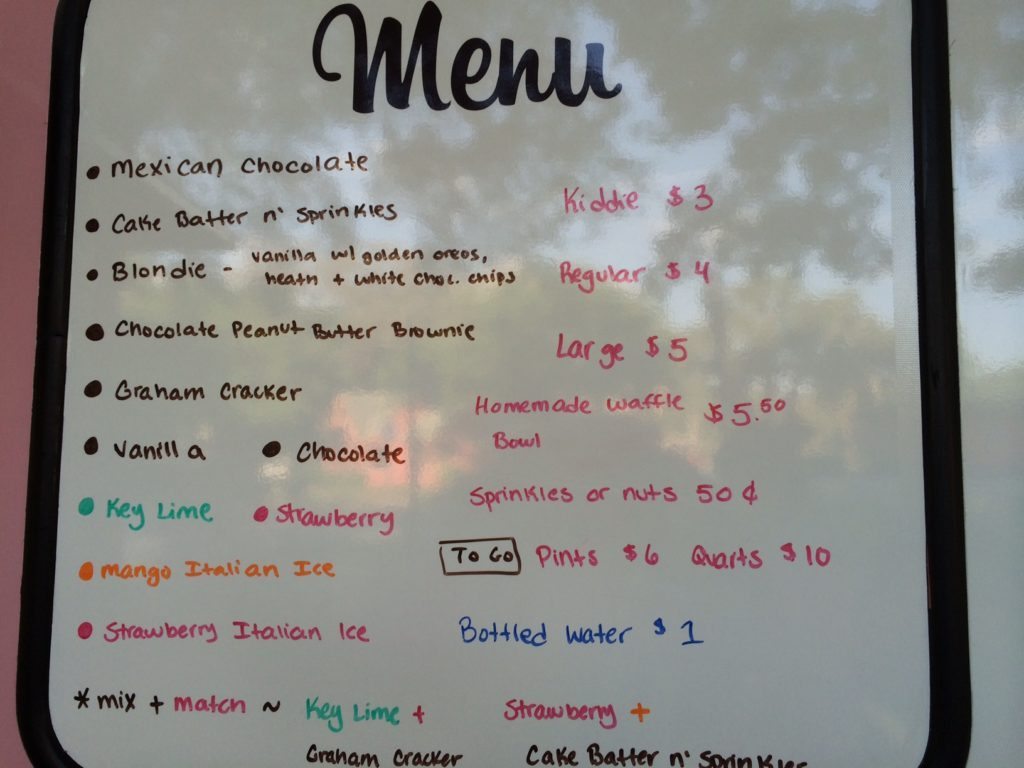 Menu
• Mexican Chocolate
• Cake Batter n' Sprinkles
• Blondie - vanilla w/ golden oreos,
heath + white choc. chips
• Chocolate Peanut Butter Brownie
• Graham Cracker
• Vanilla • Chocolate
• Key Lime • Strawberry
• Mango Italian Ice
• Strawberry Italian Ice
Kiddie $3
Regular $4
Large $5
Homemade Waffle $5.50
Bowl
Sprinkles or nuts 50¢
To Go Pints $6 Quarts $10
Bottled Water $1
*mix + match ~ Key Lime + Strawberry +
Graham Cracker Cake Batter n' Sprinkles